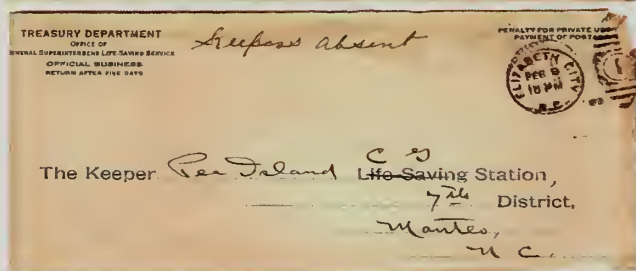 TREASURY DEPARTMENT
OFFICE OF
GENERAL SUPERINTENDENT LIFE-SAVING SERVICE
OFFICIAL BUSINESS
RETURN AFTER FIVE DAYS
Keepers absent
PENALTY FOR PRIVATE USE
PAYMENT OF POSTA
ELIZABETH CITY
FEB 9
N.C.
1
The Keeper Pea Island C G Life-Saving Station,
7th District,
Manteo,
N C.